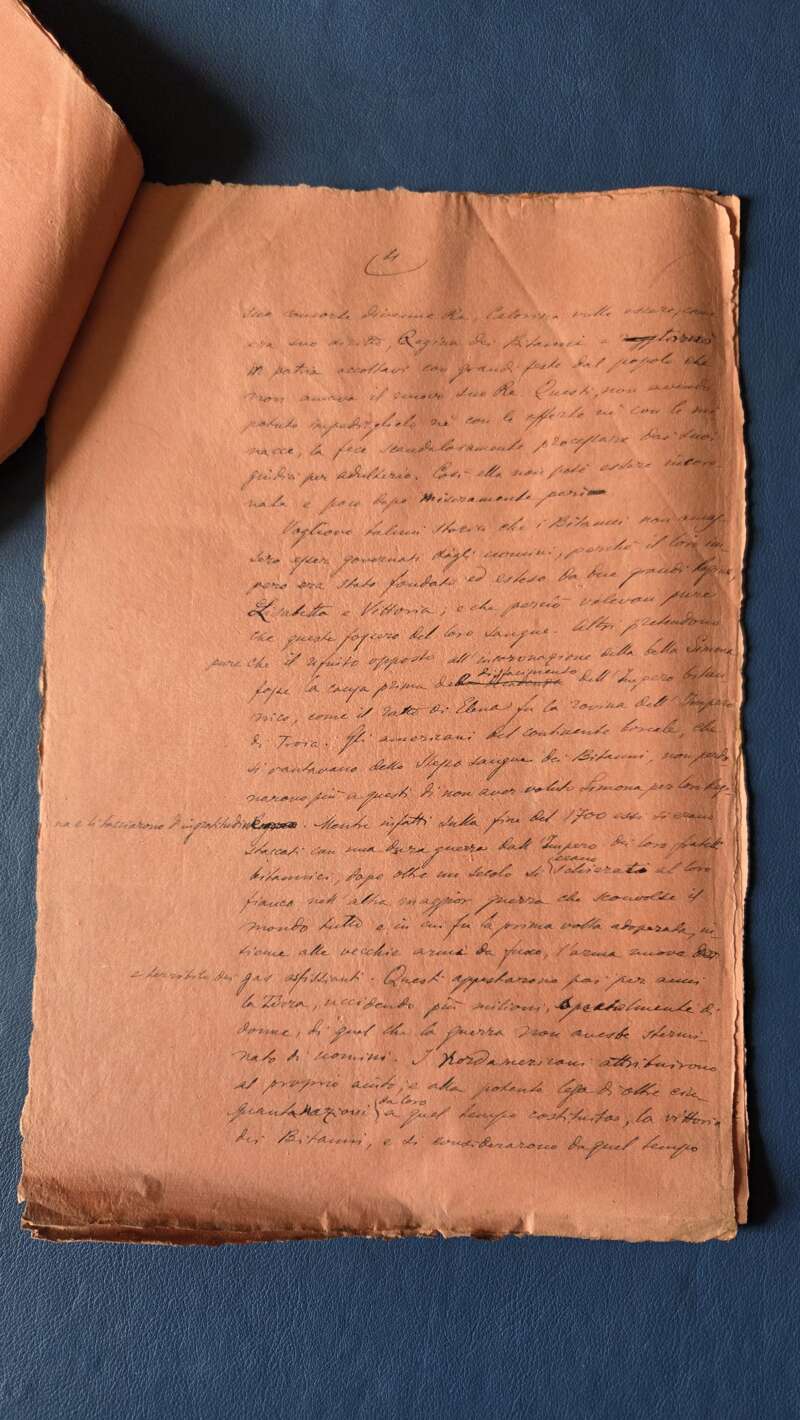 4
suo consorte divenne Re, volle essere, come
era suo diritto, Regina dei Bitanni e
in patria accoltavi con grandi feste dal popolo che
non amava il nuovo suo Re. Questi, non avendo
potuto impedirglielo nè con le offerte nè con le mi
nacce, la fece scandalosamente processare dai suoi
giudici per adulterio. Così ella non potè essere incoro-
nata e poco dopo miseramente perì
Vogliono taluni storici che i Bitanni non
esser governati dagli uomini, perchè il loro im-
pero era stato fondato ed esteso da due grandi Regine,
Elisabetta e Vittoria, e che perciò volevan pure
che queste fossero del loro sangue. Altri pretendono
pure che il rifiuto opposto all'incoronazione della bella Simona
fosse la causa prima del disfacimento dell'Impero bitan
nico, come il ratto di Elena fu la rovina dell'Impero
di Troia. Gli americani del continente boreale, che
si vantavano dello stesso sangue dei Bitanni, non perdo
narono più a questi di non aver voluto Simona per loro Regi-
na e li tacciarono d'ingratitudine. Mentre infatti sulla fine del 1700 essi si erano
staccati con una dura guerra dall'Impero di loro fratelli
bitannici, dopo oltre un secolo si erano schierati al loro
fianco nell'altra maggior guerra che sconvolse il
mondo tutto e in cui fu la prima volta adoperata, in-
sieme alle vecchie armi da fuoco, l'arma nuova
e terribile dei gas asfissianti. Questi appestarono poi per anni
la Terra, uccidendo più milioni, specialmente di
donne, di quel che la guerra non avesse stermi-
nato di uomini. I Nordamericani attribuirono
al proprio aiuto, e alla potente lega di oltre cin-
quanta nazioni da loro a quel tempo costituita, la vittoria
dei Bitanni, e si considerarono da quel tempo